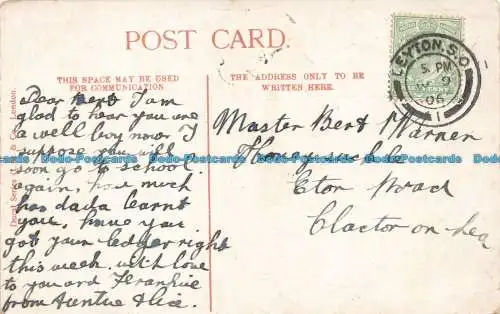 POST CARD.
THIS SPACE MAY BE USED
FOR COMMUNICATION
THE ADDRESS ONLY TO BE
WRITTEN HERE.
LEYTON. S.O
5 PM
9
06
Dear Bert I am
glad to hear you are
a well boy now I
suppose you will
soon go to school
again, how much
has dada learnt
you, have you
got your ledder right
this week. with love
to you and Frankie
from Auntie Alice.
Master Bert Warner
Honeysuckle
Eton Road
Clacton-on-Sea
Series
& Co., London.
Dodo-Postcards Dodo-Postcards Dodo-Postcards Dodo-Postcards Dodo-Postcards